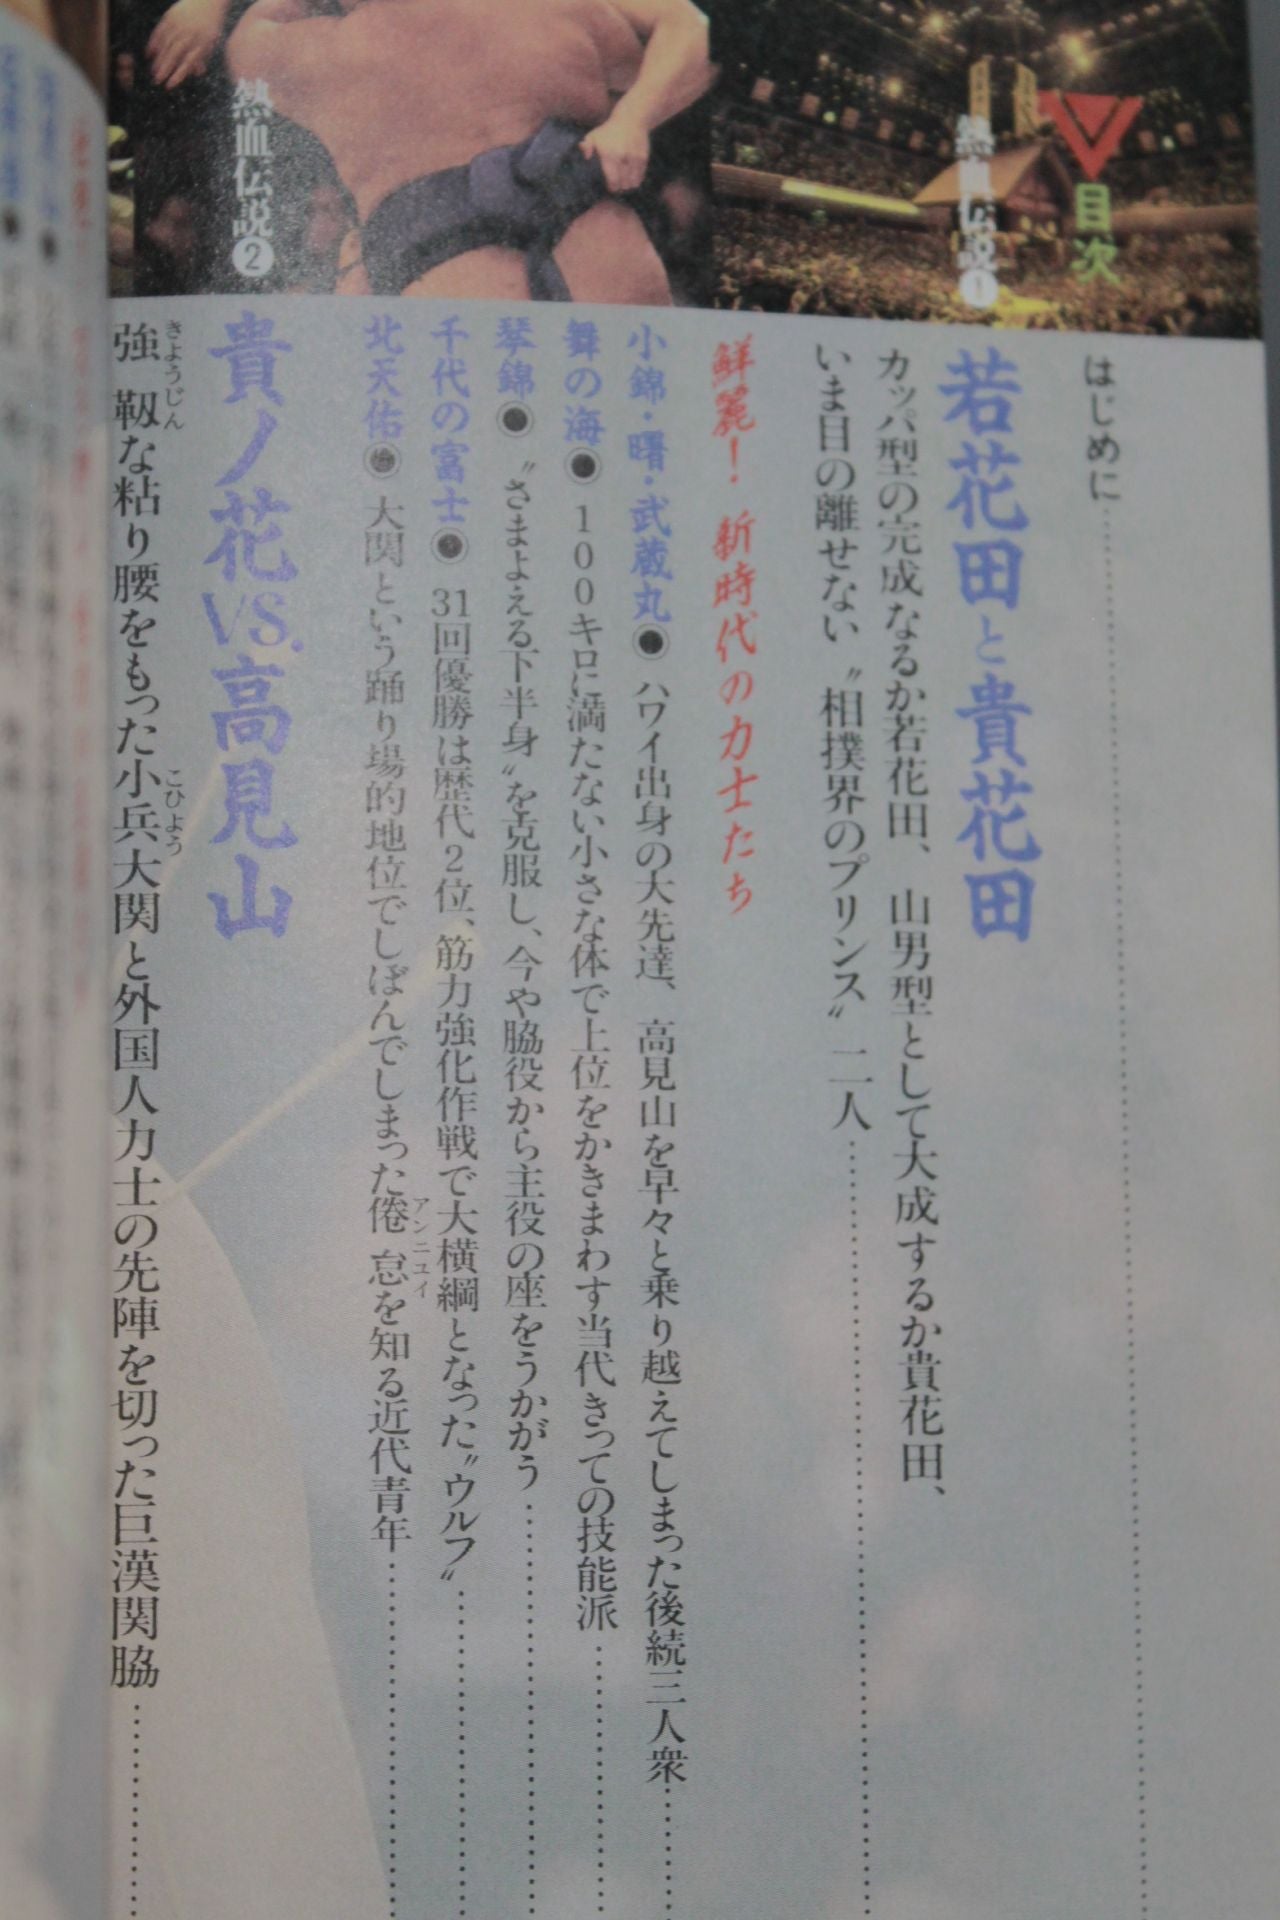 目次
はじめに
熱血伝説❶
若花田と貴花田
カッパ型の完成なるか若花田、山男型として大成するか貴花田、
いま目の離せない〝相撲界のプリンス〟二人
鮮麗! 新時代の力士たち
小錦・曙・武蔵丸◉ハワイ出身の大先達、高見山を早々と乗り越えてしまった後続三人衆
舞の海◉100キロに満たない小さな体で上位をかきまわす当代きっての技能派
琴錦◉〝さまよえる下半身〟を克服し、今や脇役から主役の座をうかがう
千代の富士◉31回優勝は歴代2位、筋力強化作戦で大横綱となった〝ウルフ〟
北天佑◉大関という踊り場的地位でしぼんでしまった倦怠を知る近代青年
アンニュイ
熱血伝説❷
貴ノ花VS.高見山
強靱な粘り腰をもった小兵大関と外国人力士の先陣を切った巨漢関脇
きょうじん
こひょう